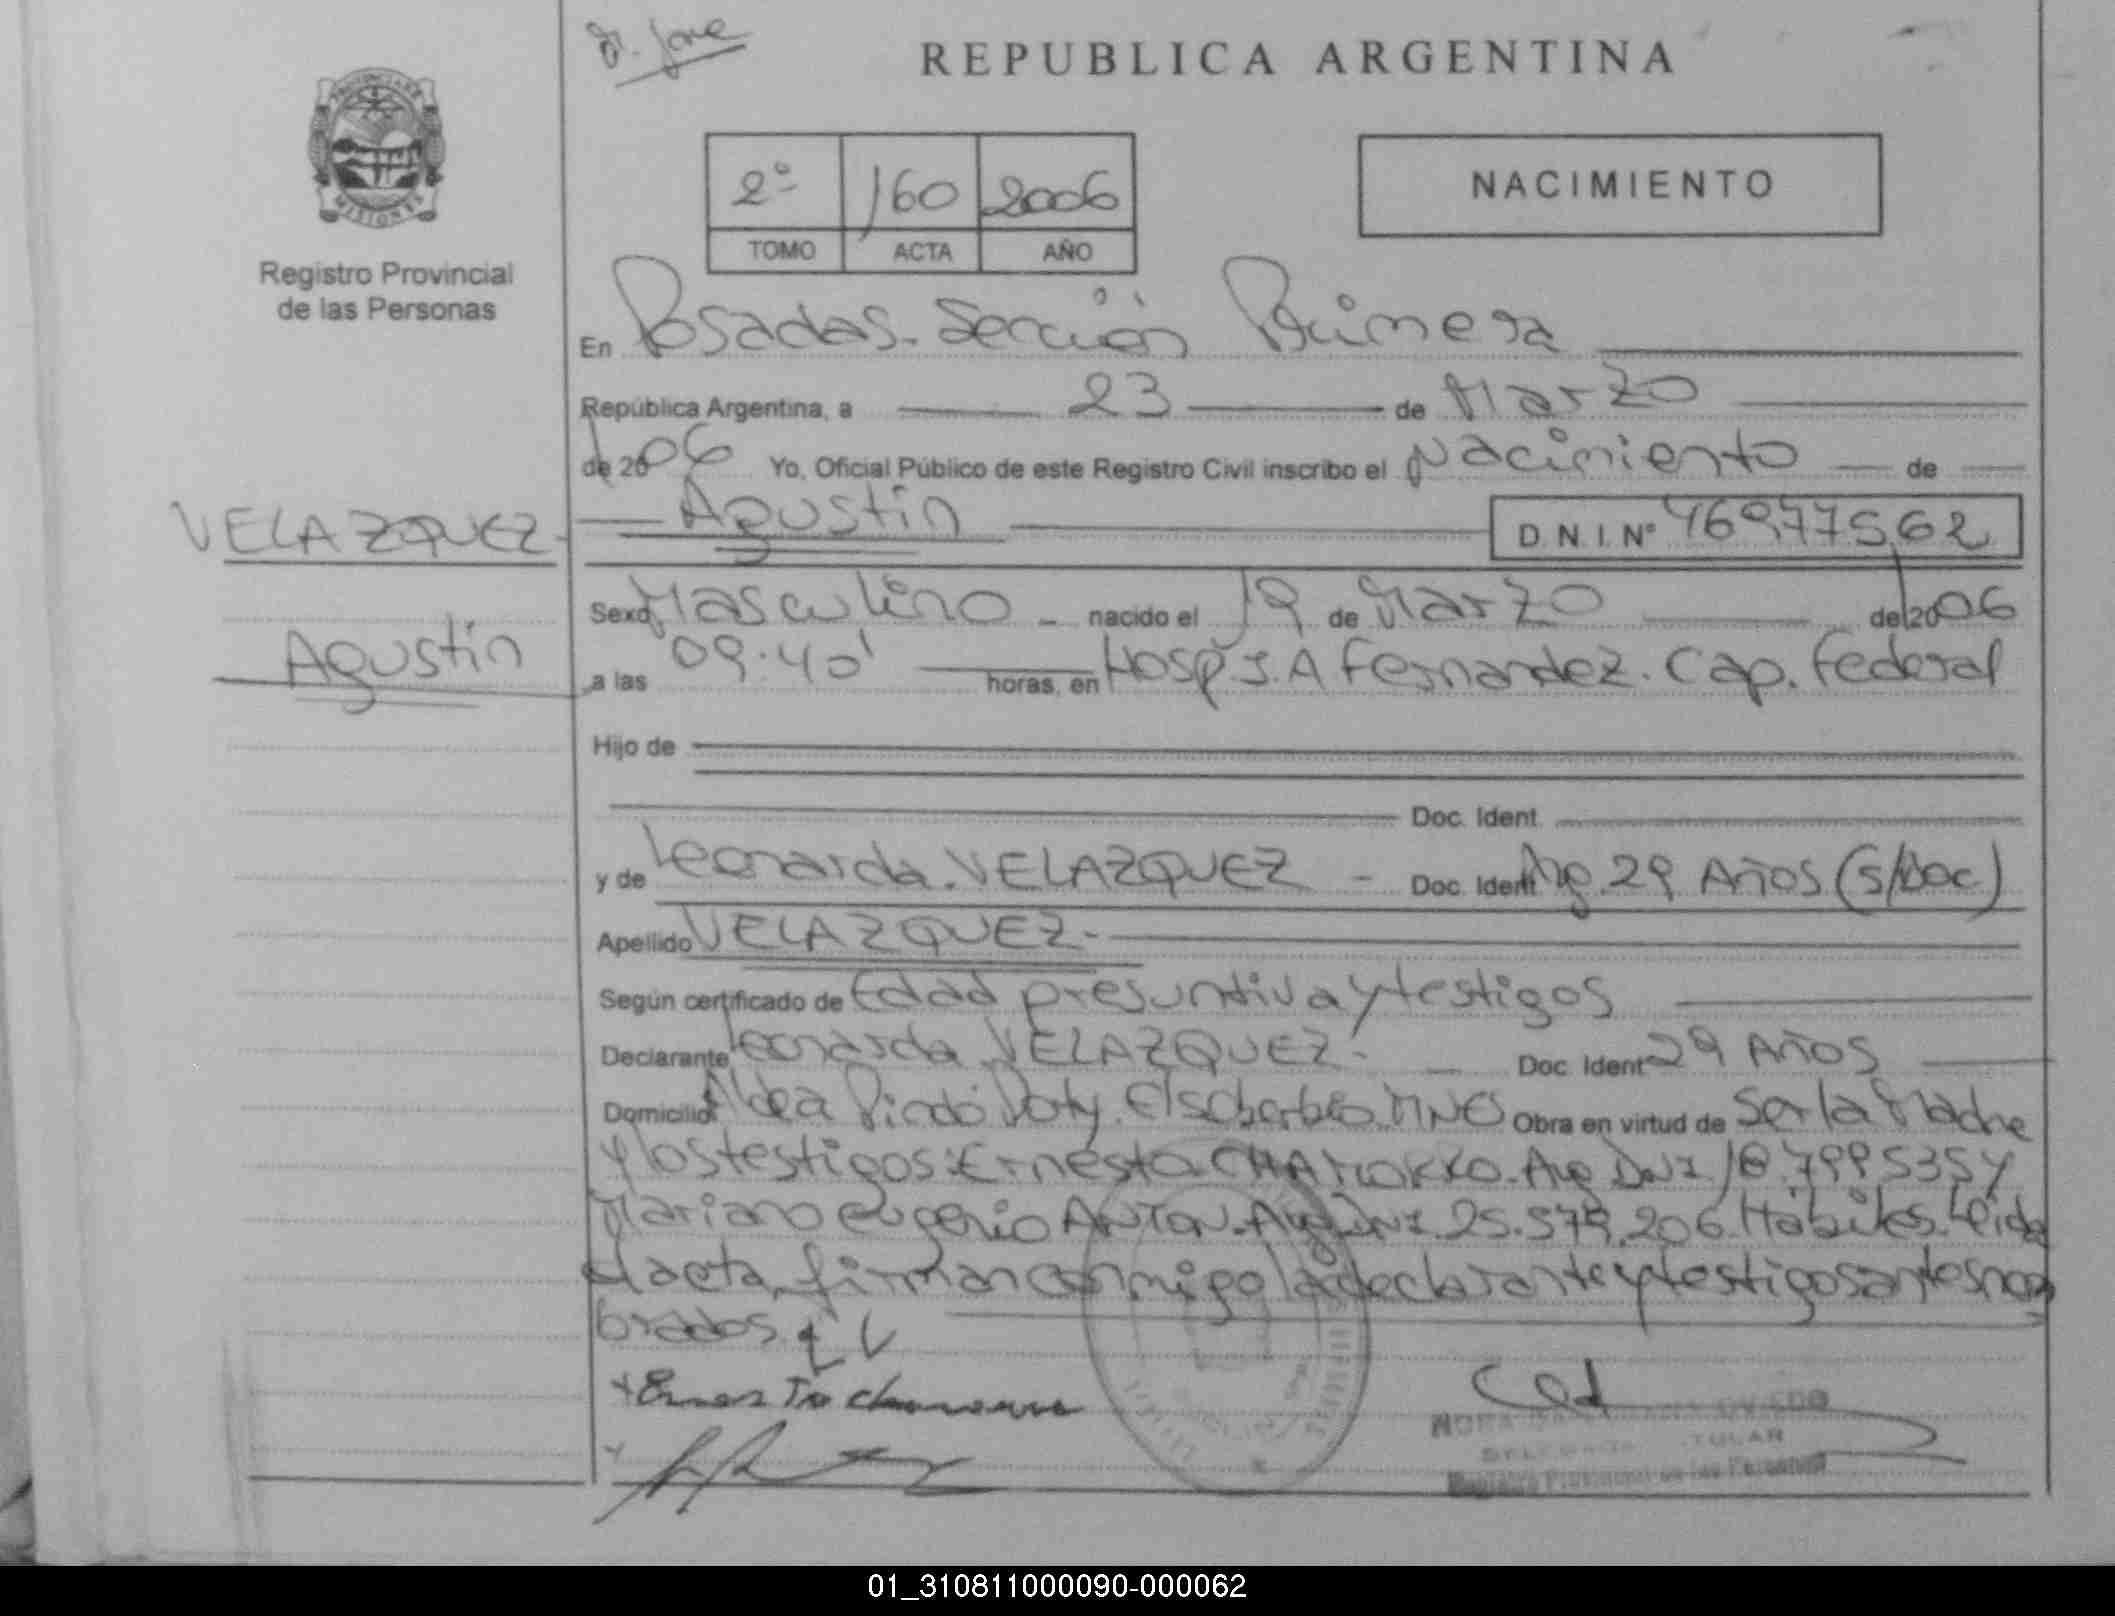 Dr. Jore
REPUBLICA ARGENTINA
PROVINCIA DE
MISIONES
Registro Provincial
de las Personas
2º 160 2006
TOMO ACTA AÑO
NACIMIENTO
En Posadas. Sección Primera
República Argentina, a 23 de Marzo
de 2006 Yo, Oficial Público de este Registro Civil inscribo el Nacimiento de
VELAZQUEZ
Agustín
D.N.I. Nº 46977562
Agustín
Sexo Masculino nacido el 19 de Marzo de 2006
a las 09.40' horas, en Hosp J.A Fernandez. Cap. Federal
Hijo de
Doc. Ident.
y de Leonarda. VELAZQUEZ - Doc. Ident Arg. 29 Años (S/Doc)
Apellido VELAZQUEZ.-
Según certificado de Edad presuntiva y testigos
Declarante Leonarda VELAZQUEZ.- Doc. Ident 29 Años
Domicilio Aldea Pindó Poty. Elsoberbio. MNES Obra en virtud de Ser la Madre
y los testigos: Ernesto CHAMORRO. Arg DNI 18.799535 y
Mariano eugenio ANTON. Arg DNI 25.579.206. Hábiles. Leida
el acta, firman conmigo la declarante y testigos antes nom
brados.
Ernesto chamorro
OVIEDO
DELEGADA TITULAR
Registro Provincial de las Personas
01_310811000090-000062